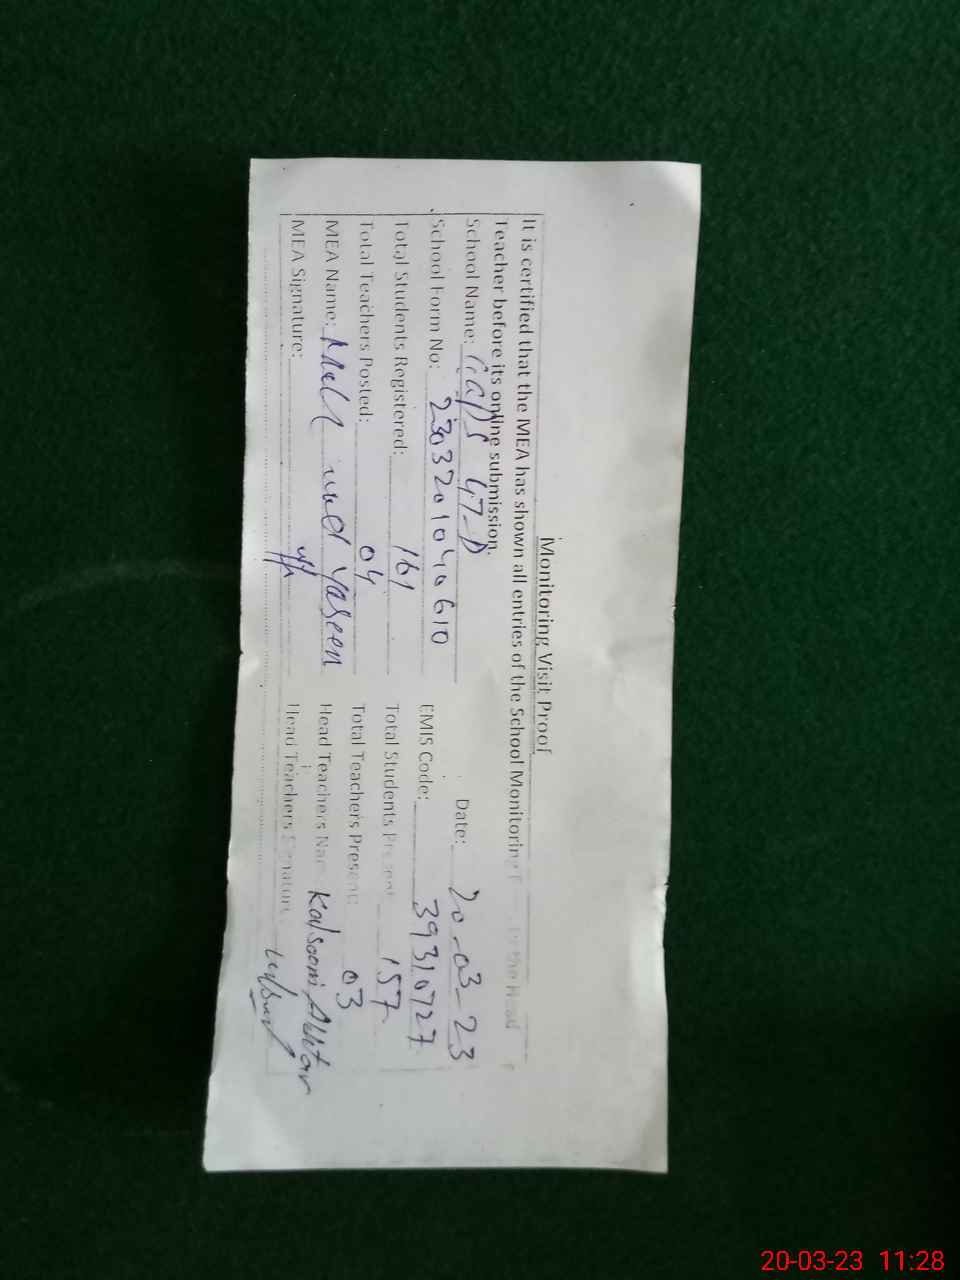 Monitoring Visit Proof
It is certified that the MEA has shown all entries of the School Monitoring the Head
Teacher before its online submission.
School Name: GGPS 47-D Date: 20-03-23
School Form No: 230320104010610 EMIS Code: 39310727
Total Students Registered: 161 Total Students Present 157
Total Teachers Posted: 04 Total Teachers Present: 03
MEA Name: Yaseen Head Teachers Kalsoom Akhtar
MEA Signature: Head Teachers Signature
20-03-23 11:28